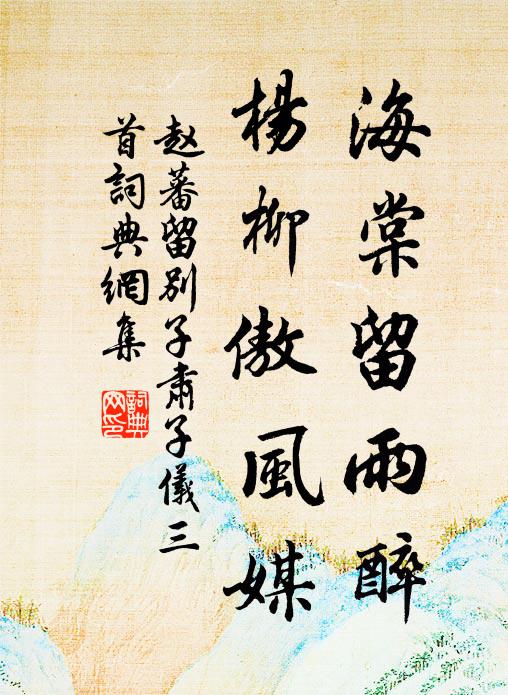 海棠留雨醉
楊柳傲風媒
赵蕃留別子肅子儀三
首詞典網集
詞典
网印